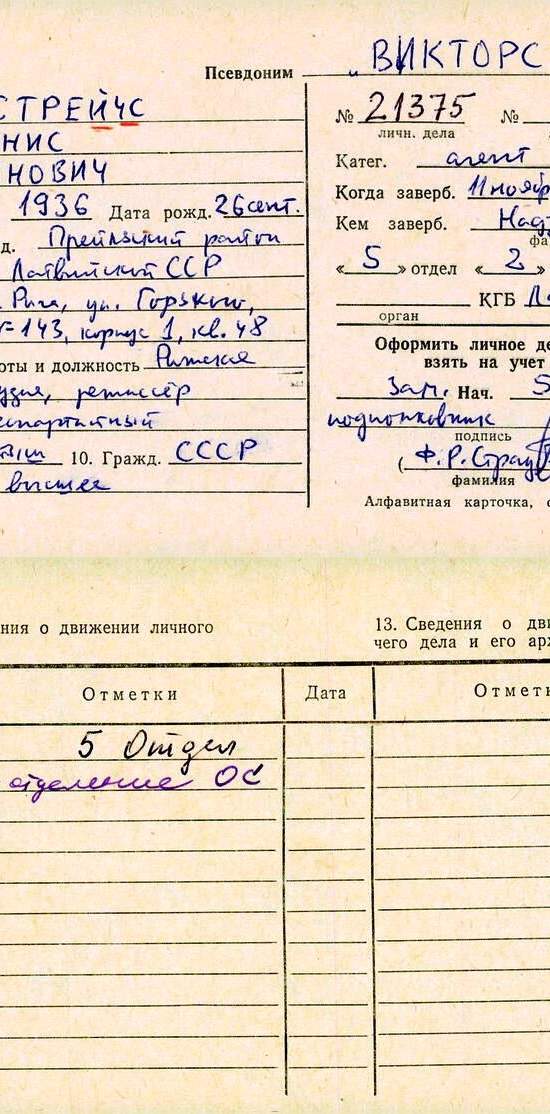 Псевдоним „ВИКТОРС
СТРЕЙЧС
НИС
НОВИЧ
1936 Дата рожд. 26 сент.
д. Прейльский район
Латвийской ССР
Рига, ул. Горького,
143, корпус 1, кв. 48
оты и должность Рижская
режиссёр
беспартийный
10. Гражд. СССР
высшее
№ 21375 №
личн. дела
Катег. агент
Когда заверб. 11 нояб
Кем заверб. Над
фа
« 5 » отдел « 2 »
КГБ Ла
орган
Оформить личное де
взять на учет
Зам. Нач. 5
подполковник
подпись
(Ф.Р.
фамилия
Алфавитная карточка,
ния о движении личного
13. Сведения о дви
чего дела и его арх
Отметки Дата Отметк
5 Отдел
отделение ОС